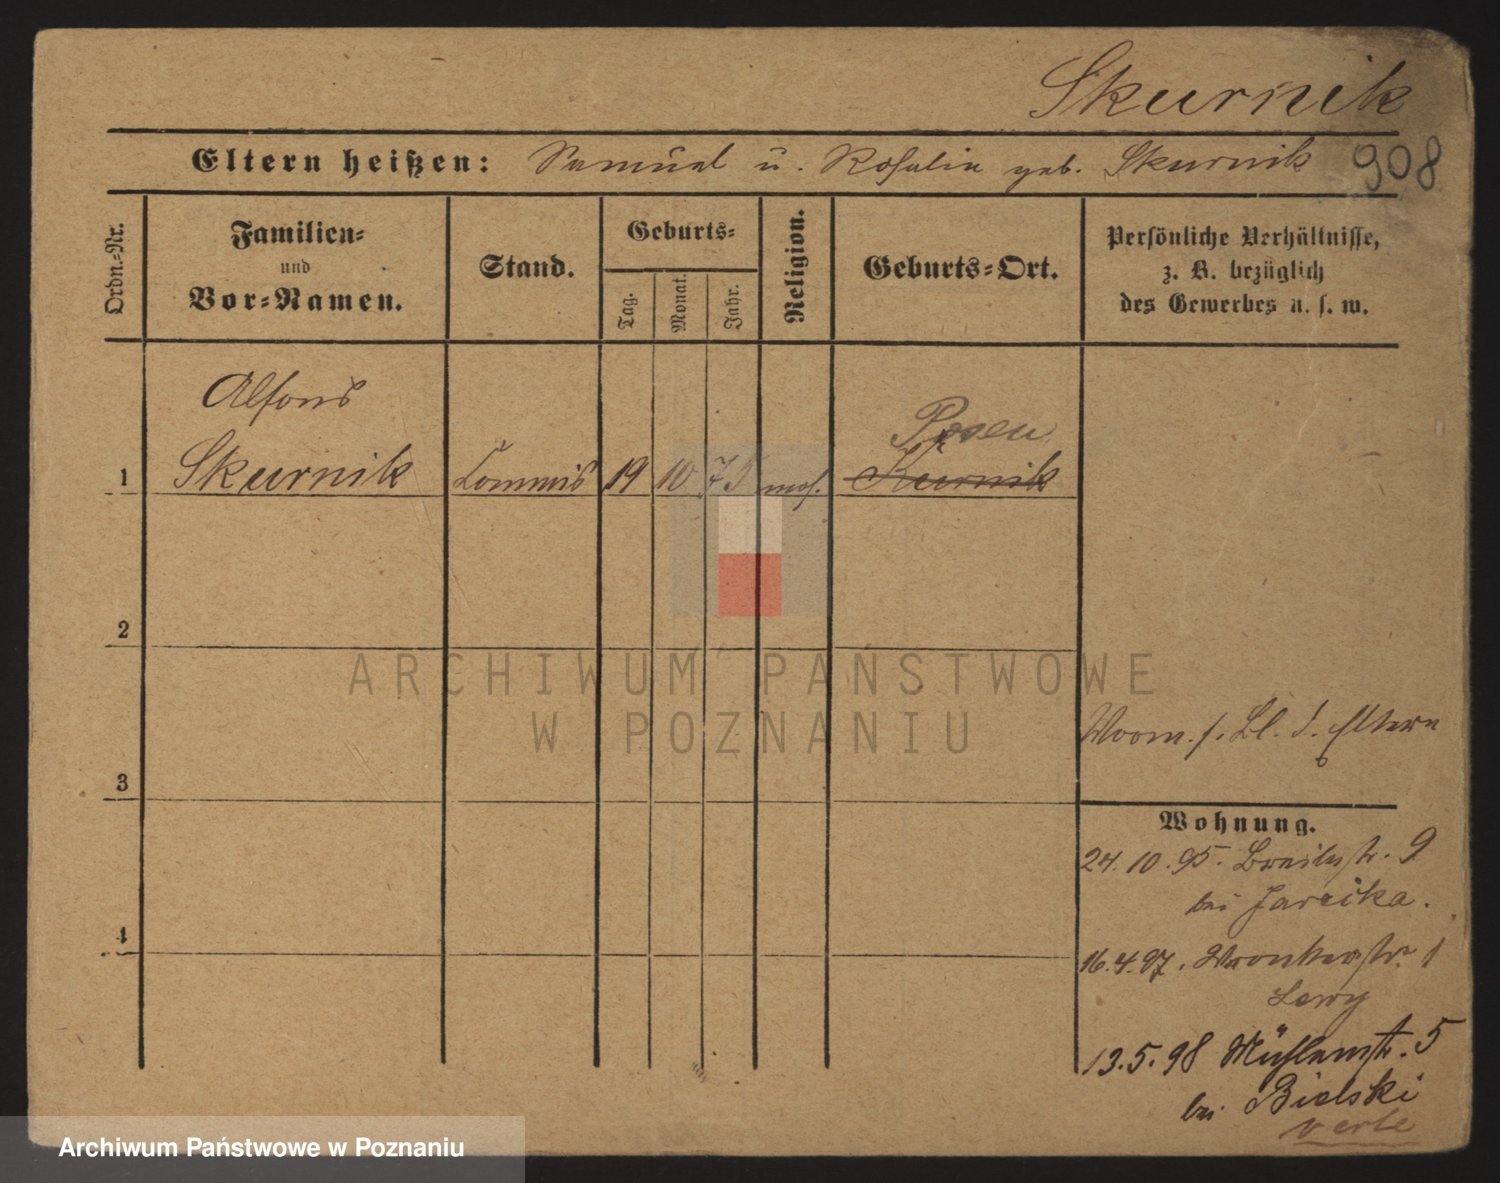 Skurnik
908
Eltern heißen: Samuel u. Rosalie geb. Skurnik
Ordn.-Nr.
Familien-
und
Vor-Namen.
Stand.
Geburts-
Tag.
Monat.
Jahr.
Religion.
Geburts-Ort.
Persönliche Verhältnisse,
z. B. bezüglich
des Gewerbes u. s. w.
Alfons
Posen
1 Skurnik Commis 19 10 75 mos. Kurnik
2
ARCHIWUM PAŃSTWOWE
W POZNANIU
Bl. d. Eltern
3
Wohnung.
24.10.95. Breitestr. 9
bei Jarcika.
4
16.4.97. Wronkerstr. 1
Lewy
13.5.98 Mühlenstr. 5
bei Bielski
verte
Archiwum Państwowe w Poznaniu